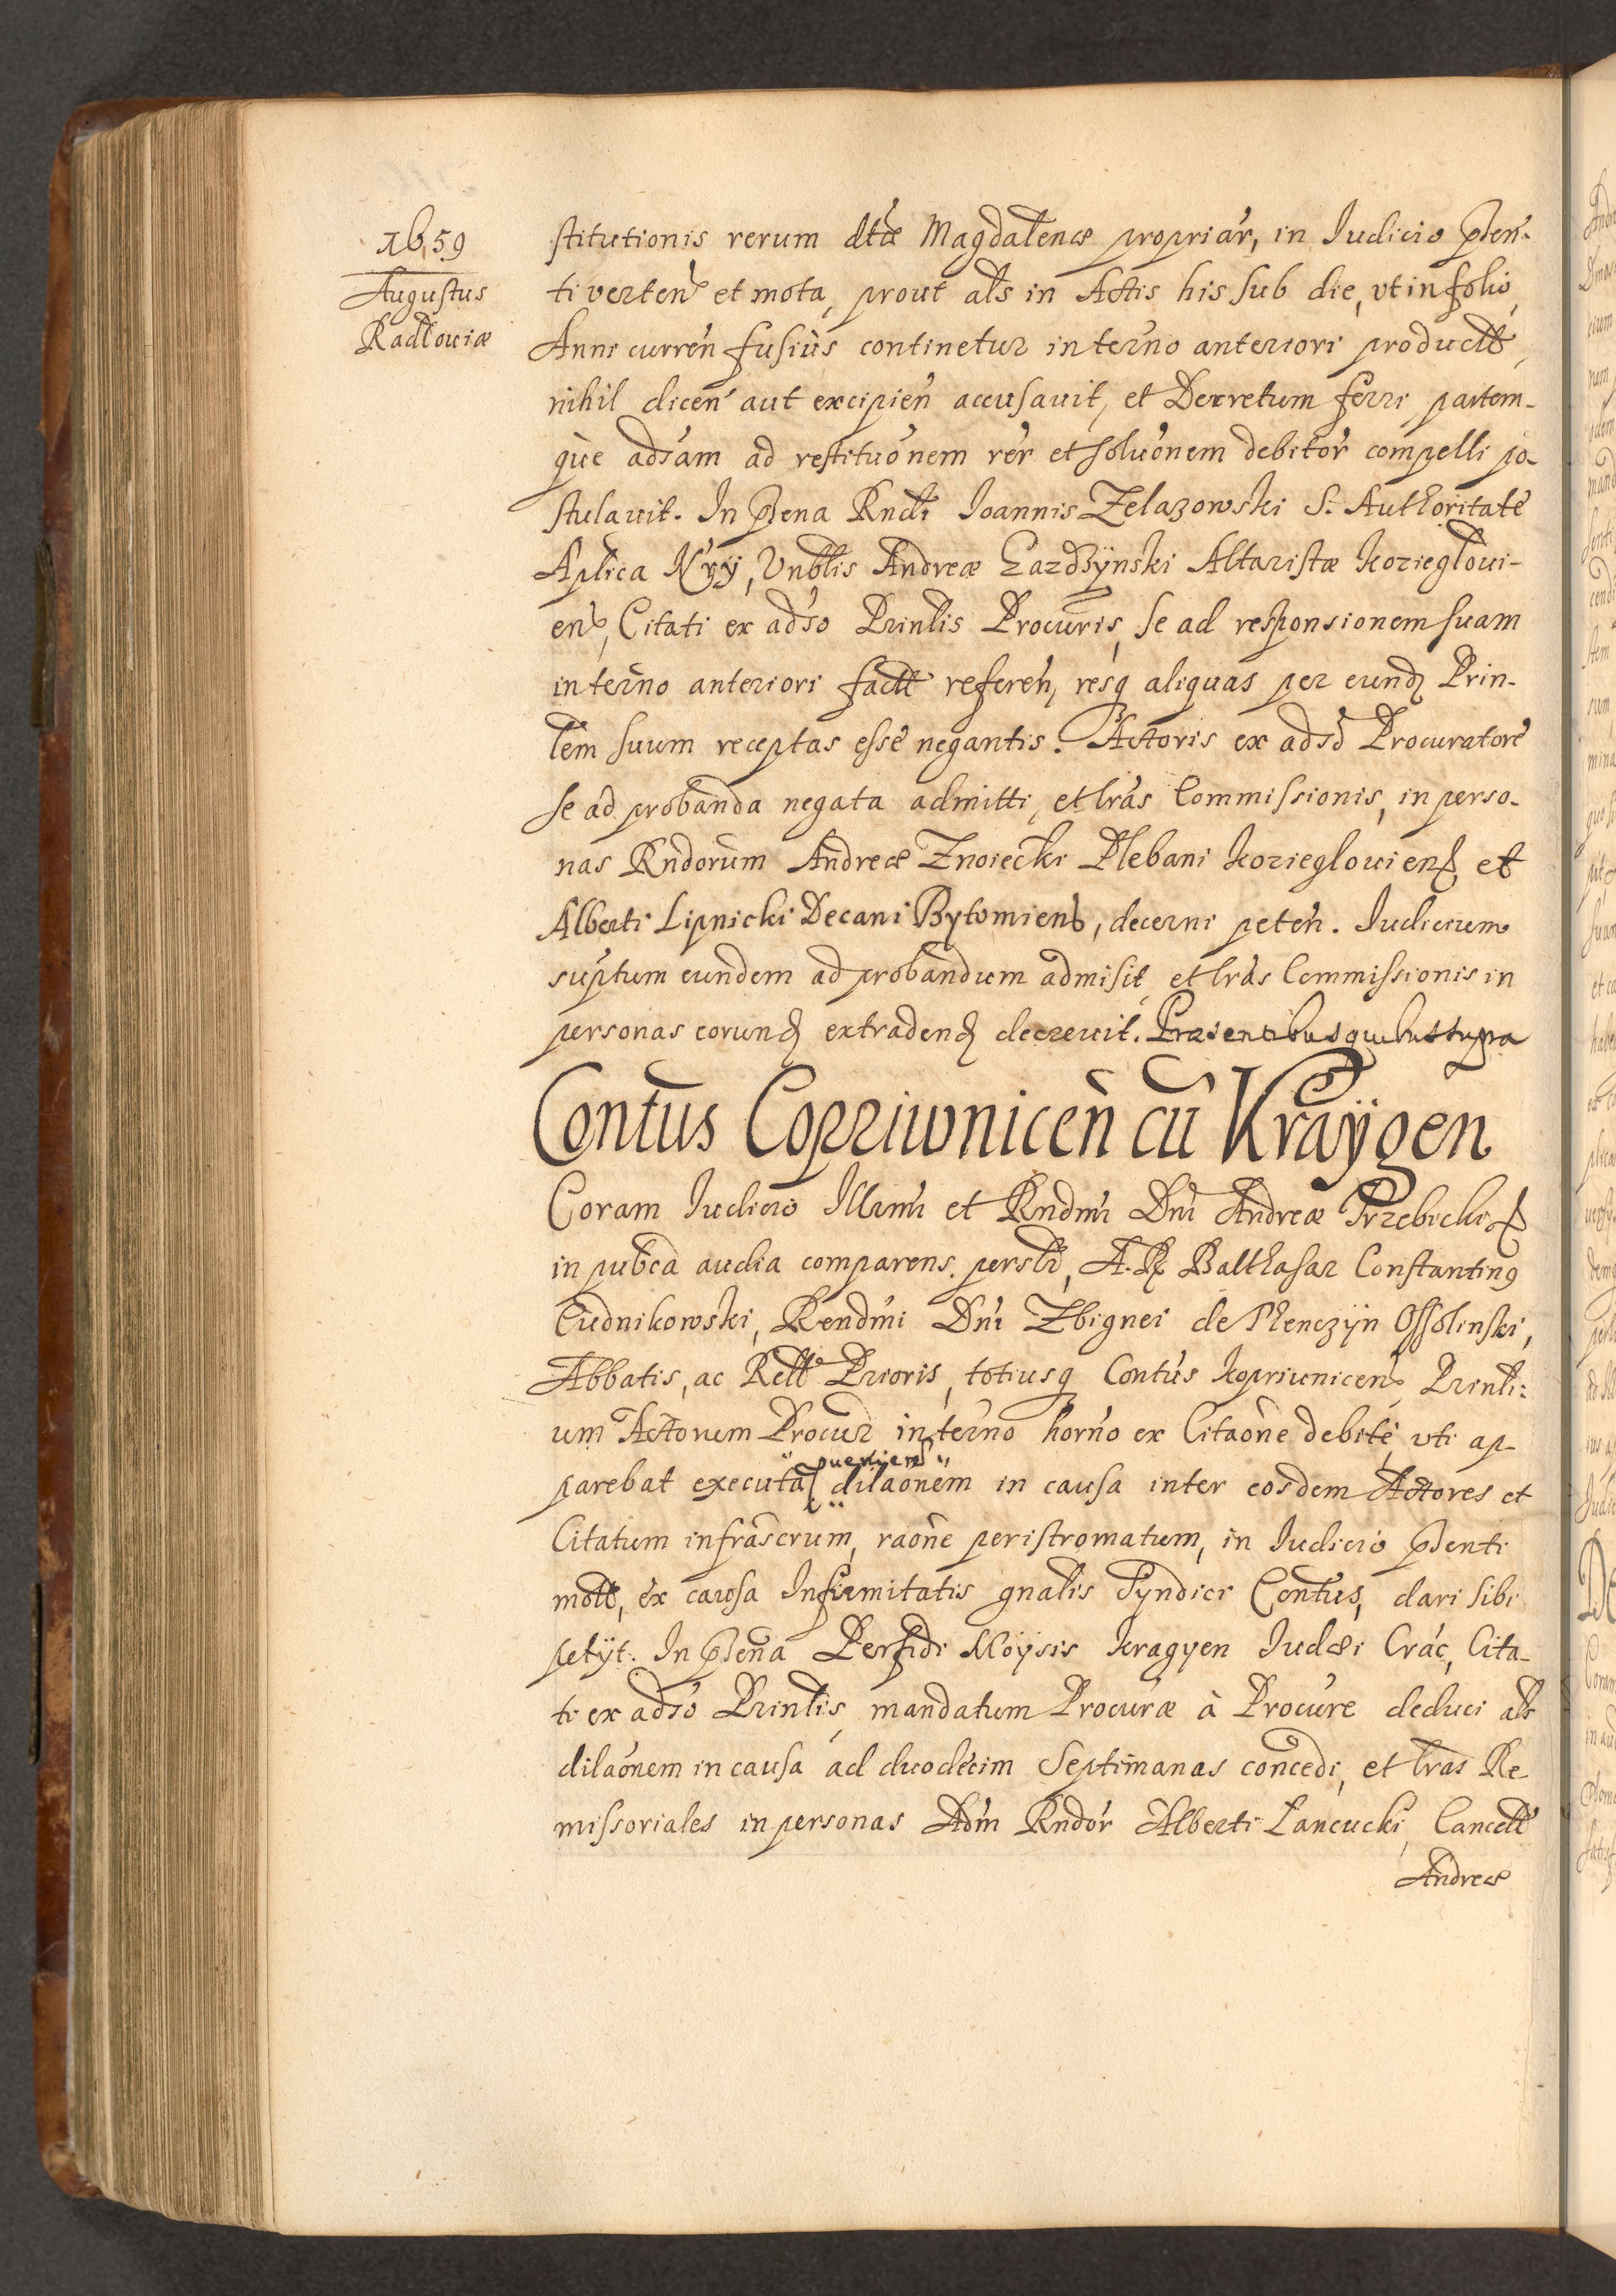 1659
Augustus
Radłouiæ
stitutionis rerum dtæ Magdalenæ propriar, in Iudicio pñen-
ti verteñ et mota, prout als in Actis his sub die, vt in folio,
Anni curreñ fusius continetur in terno anteriori productt,
nihil diceñ aut excipieñ accusauit, et Decretum ferri partem-
què adsam ad restituõnem rer et soluõnem debitor compelli po-
stulauit. In pñena Rndi Ioannis Zelazowski S. Authoritate
Aplica Nrÿ, Vnblis Andreæ Gazdzÿnski Altaristæ Koziegloui-
ens, Citati ex adso Prinlis Procuris, se ad responsionem suam
in terno anteriori factt refereñ, resq aliquas per eund Prin-
lem suum receptas esse negantis. Actoris ex adso Procuratore
se ad probanda negata admitti, et lras Commissionis, in perso-
nas Rndorum Andreæ Znoiecki Plebani Kozieglouiens, et
Alberti Lipnicki Decani Bytomiens, decerni peteñ. Iudicium
suptum eundem ad probandum admisit, et lras Commissionis in
personas eorund extradend decreuit. Præsentibus quibus supra
Contus Coprziwniceñ cu Kraÿgen
Coram Iudicio Illmi et Rndmi Dni Andreæ Trzebicki
in pubca audia comparens persltr, A. R. Balthasar Constantinq
Cudnikowski, Rendmi Dni Zbignei de Thenczÿn Ossolinski,
Abbatis, ac Rell Prioris, totiusq Contus Kopriunicens Prinli-
um Actorum Procur in terno horno ex Citaone debite, vti ap-
parebat executa dilaonem in causa inter eosdem Actores et
Citatum infrascrum, raone peristromatum, in Iudicio pñenti
mott, ex causa Infirmitatis gnalis Syndici Contus, dari sibi
petÿt. In pñena Perfidi Moÿsis Kragyen Iudæi Crac, Cita-
ti ex adso Prinlis, mandatum Procuræ à Procure deduci als
dilaonem in causa ad duodecim Septimanas concedi, et lras Re-
missoriales in personas Adm Rndor Alberti Lancucki, Cancell
Andreæ